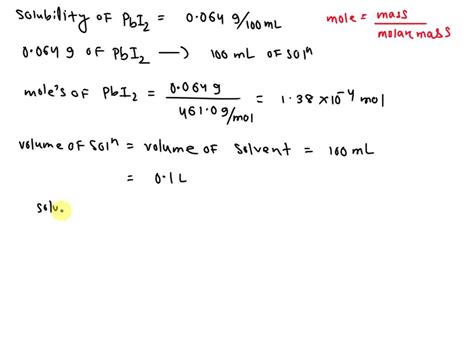 Solubility of PbI2 = 0.064 g/100mL
mole = mass/molar mass
0.064 g of PbI2 —) 100 mL of solⁿ
mole's of PbI2 = 0.064 g / 461.0 g/mol = 1.38 ×10⁻⁴ mol
volume of solⁿ = volume of solvent = 100 mL
= 0.1 L
solu